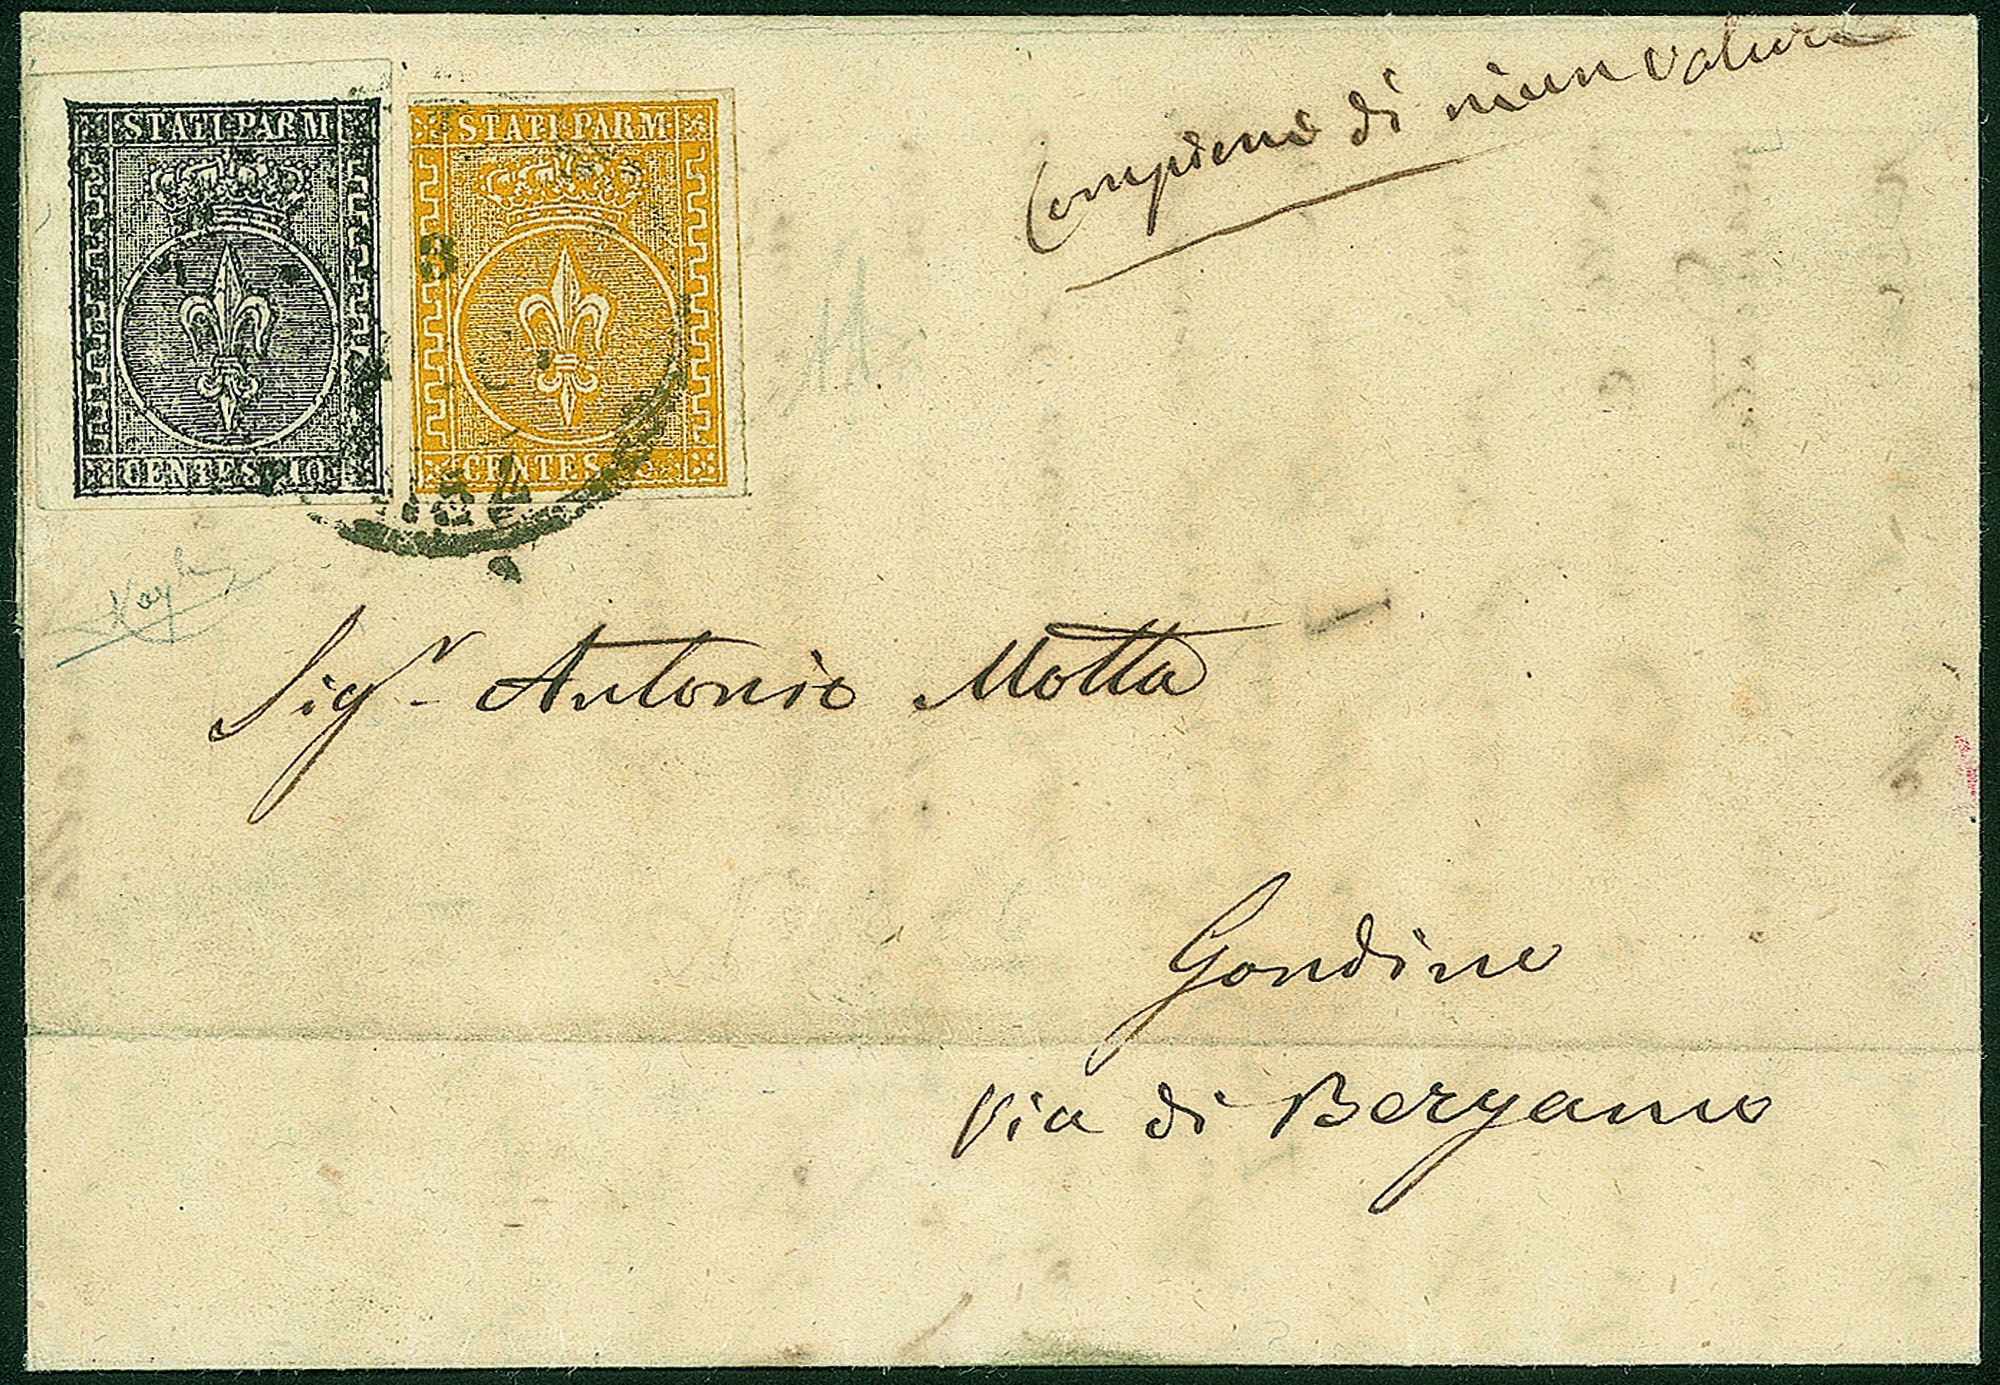 STATI PARM
CENTES 10
STATI PARM
CENTES
3
54
Campione di niun valore
Sigr Antonio Motta
Gondino
Via di Bergamo